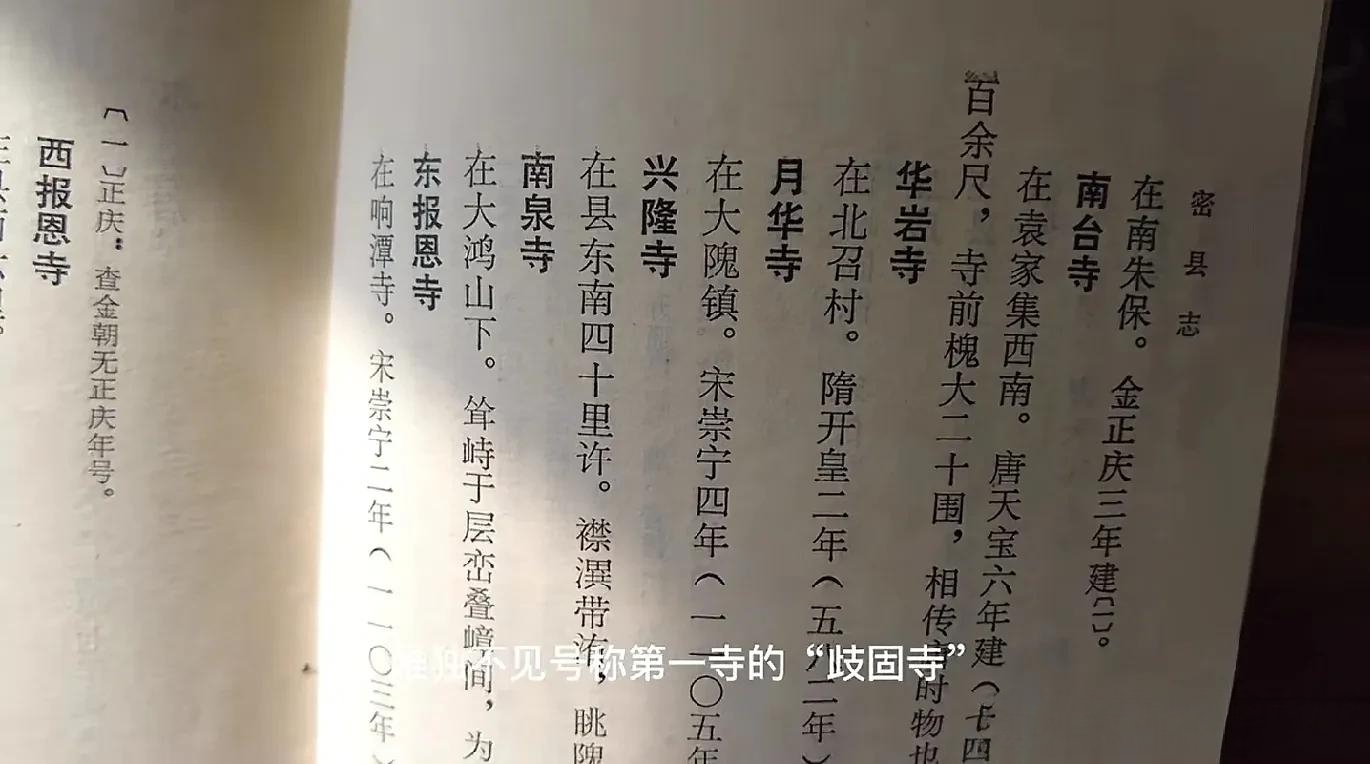 密县志
在南朱保。金正庆三年建〔一〕。
南台寺
在袁家集西南。唐天宝六年建（七四
百余尺，寺前槐大二十围，相传
时物也
华岩寺
在北召村。隋开皇二年（五八二年）
月华寺
在大隗镇。宋崇宁四年（一一〇五年
兴隆寺
在县东南四十里许。襟潩带洧，眺隗
南泉寺
在大鸿山下。耸峙于层峦叠嶂间，为
东报恩寺
在响潭寺。宋崇宁二年（一一〇三年）
〔一〕正庆：查金朝无正庆年号。
西报恩寺
唯独不见号称第一寺的“歧固寺”